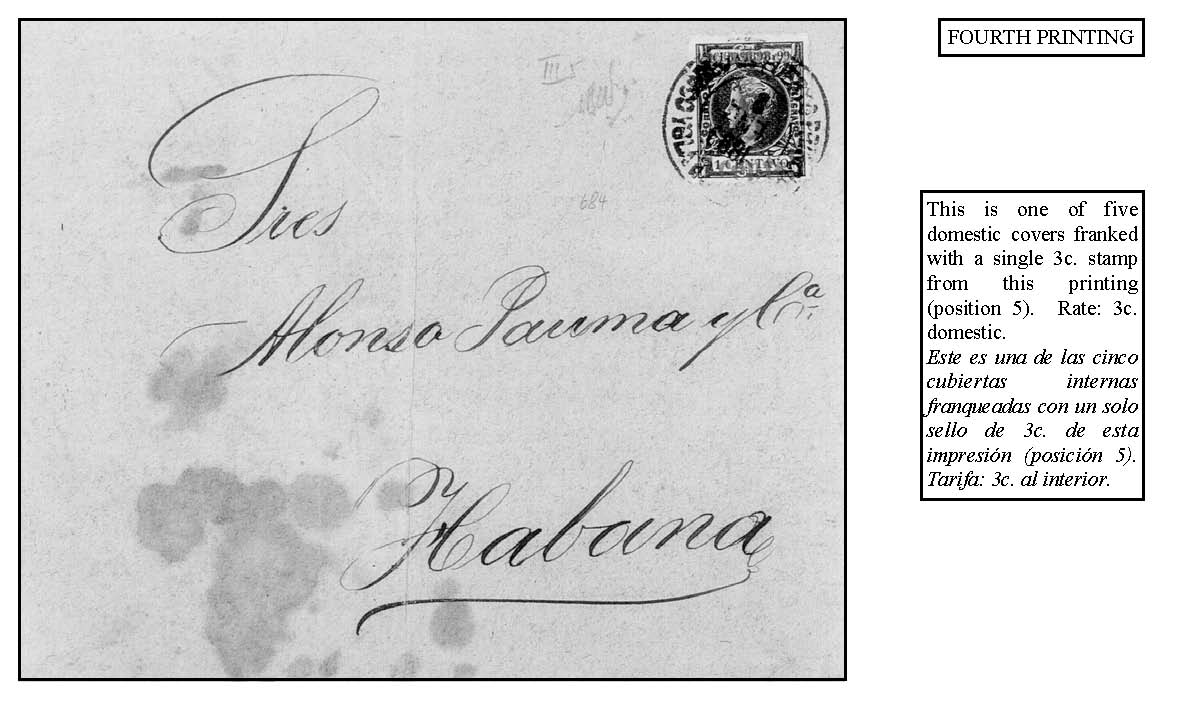 FOURTH PRINTING
III 5
684
CUBA 1898 Y 99
1 CENTAVO
Sres
Alonso Jauma y Cª
Habana
This is one of five
domestic covers franked
with a single 3c. stamp
from this printing
(position 5). Rate: 3c.
domestic.
Este es una de las cinco
cubiertas internas
franqueadas con un solo
sello de 3c. de esta
impresión (posición 5).
Tarifa: 3c. al interior.